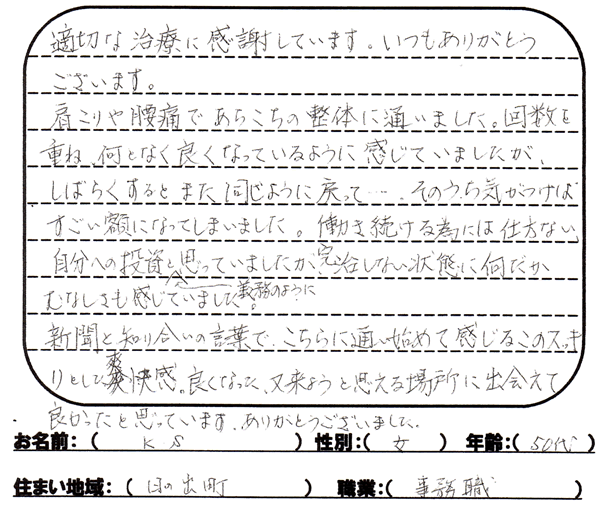 適切な治療に感謝しています。いつもありがとう
ございます。
肩こりや腰痛であちこちの整体に通いました。回数を
重ね、何となく良くなっているように感じていましたが、
しばらくするとまた同じように戻って……。そのうち気がつけば
すごい額になってしまいました。働き続ける為には仕方ない、
自分への投資と思っていましたが、完治しない状態に何だか
むなしさも感じていました。義務のように
新聞と知り合いの言葉で、こちらに通い始めて感じるこのスッキ
リとした爽快感。良くなった、又来ようと思える場所に出会えて
良かったと思っています。ありがとうございました。
お名前：（ K S ） 性別：（ 女 ） 年齢：（ 50代 ）
住まい地域：（ 日の出町 ） 職業：（ 事務職 ）